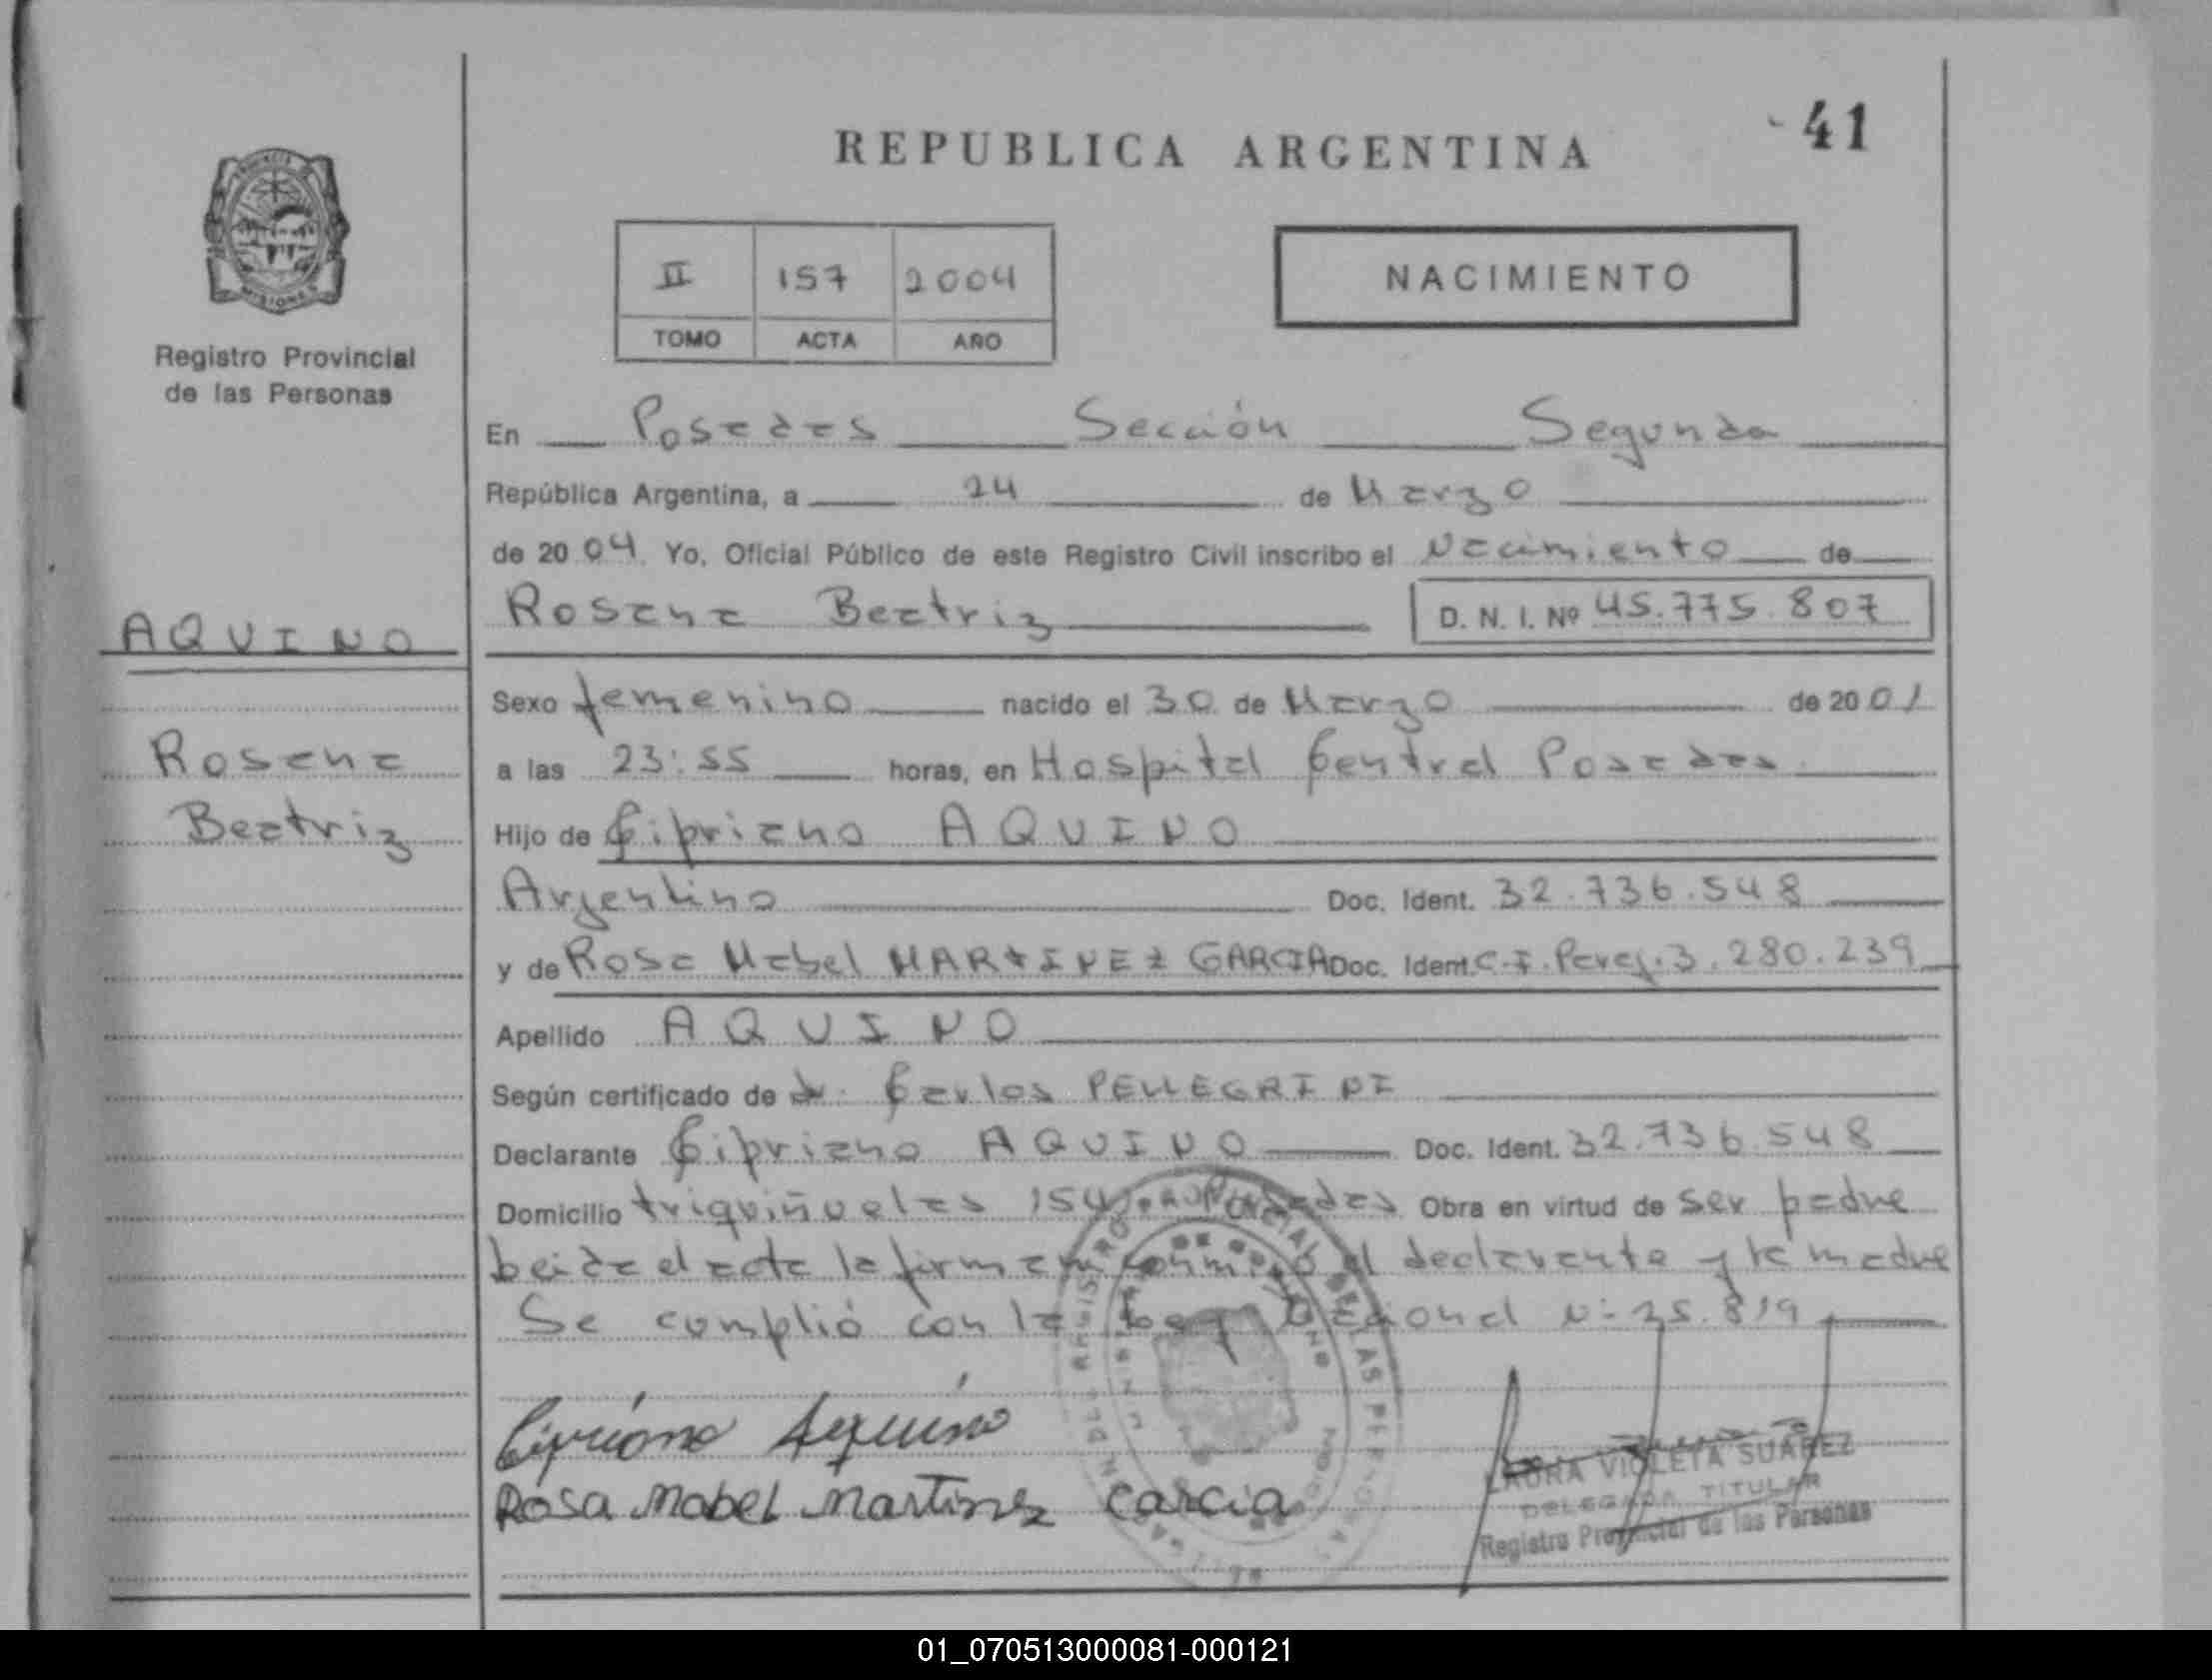 41
REPUBLICA ARGENTINA
PROVINCIA DE
MISIONES
Registro Provincial
de las Personas
II 157 2004
TOMO ACTA AÑO
NACIMIENTO
En Posadas Sección Segunda
República Argentina, a 24 de Marzo
de 2004. Yo, Oficial Público de este Registro Civil inscribo el Nacimiento de
AQUINO
Rosana Beatriz D. N. I. Nº 45.775.807
Sexo femenino nacido el 30 de Marzo de 2001
Rosana
a las 23:55 horas, en Hospital Central Posadas
Beatriz
Hijo de Cipriano AQUINO
Argentino Doc. Ident. 32.736.548
y de Rosa Mabel MARTINEZ GARCIA Doc. Ident. C.I. Parag. 3.280.239
Apellido AQUINO
Según certificado de Dr. Carlos PELLEGRINI
Declarante Cipriano AQUINO Doc. Ident. 32.736.548
Domicilio triquiñuelas Posadas Obra en virtud de ser padre
Leida el acta la firman conmigo el declarante y la madre
Se cumplió con la Ley Nacional Nº 25.819
Cipriano Aquino
Rosa Mabel Martinez Garcia
LAURA VIOLETA SUAREZ
DELEGADA TITULAR
Registro Provincial de las Personas
01_070513000081-000121